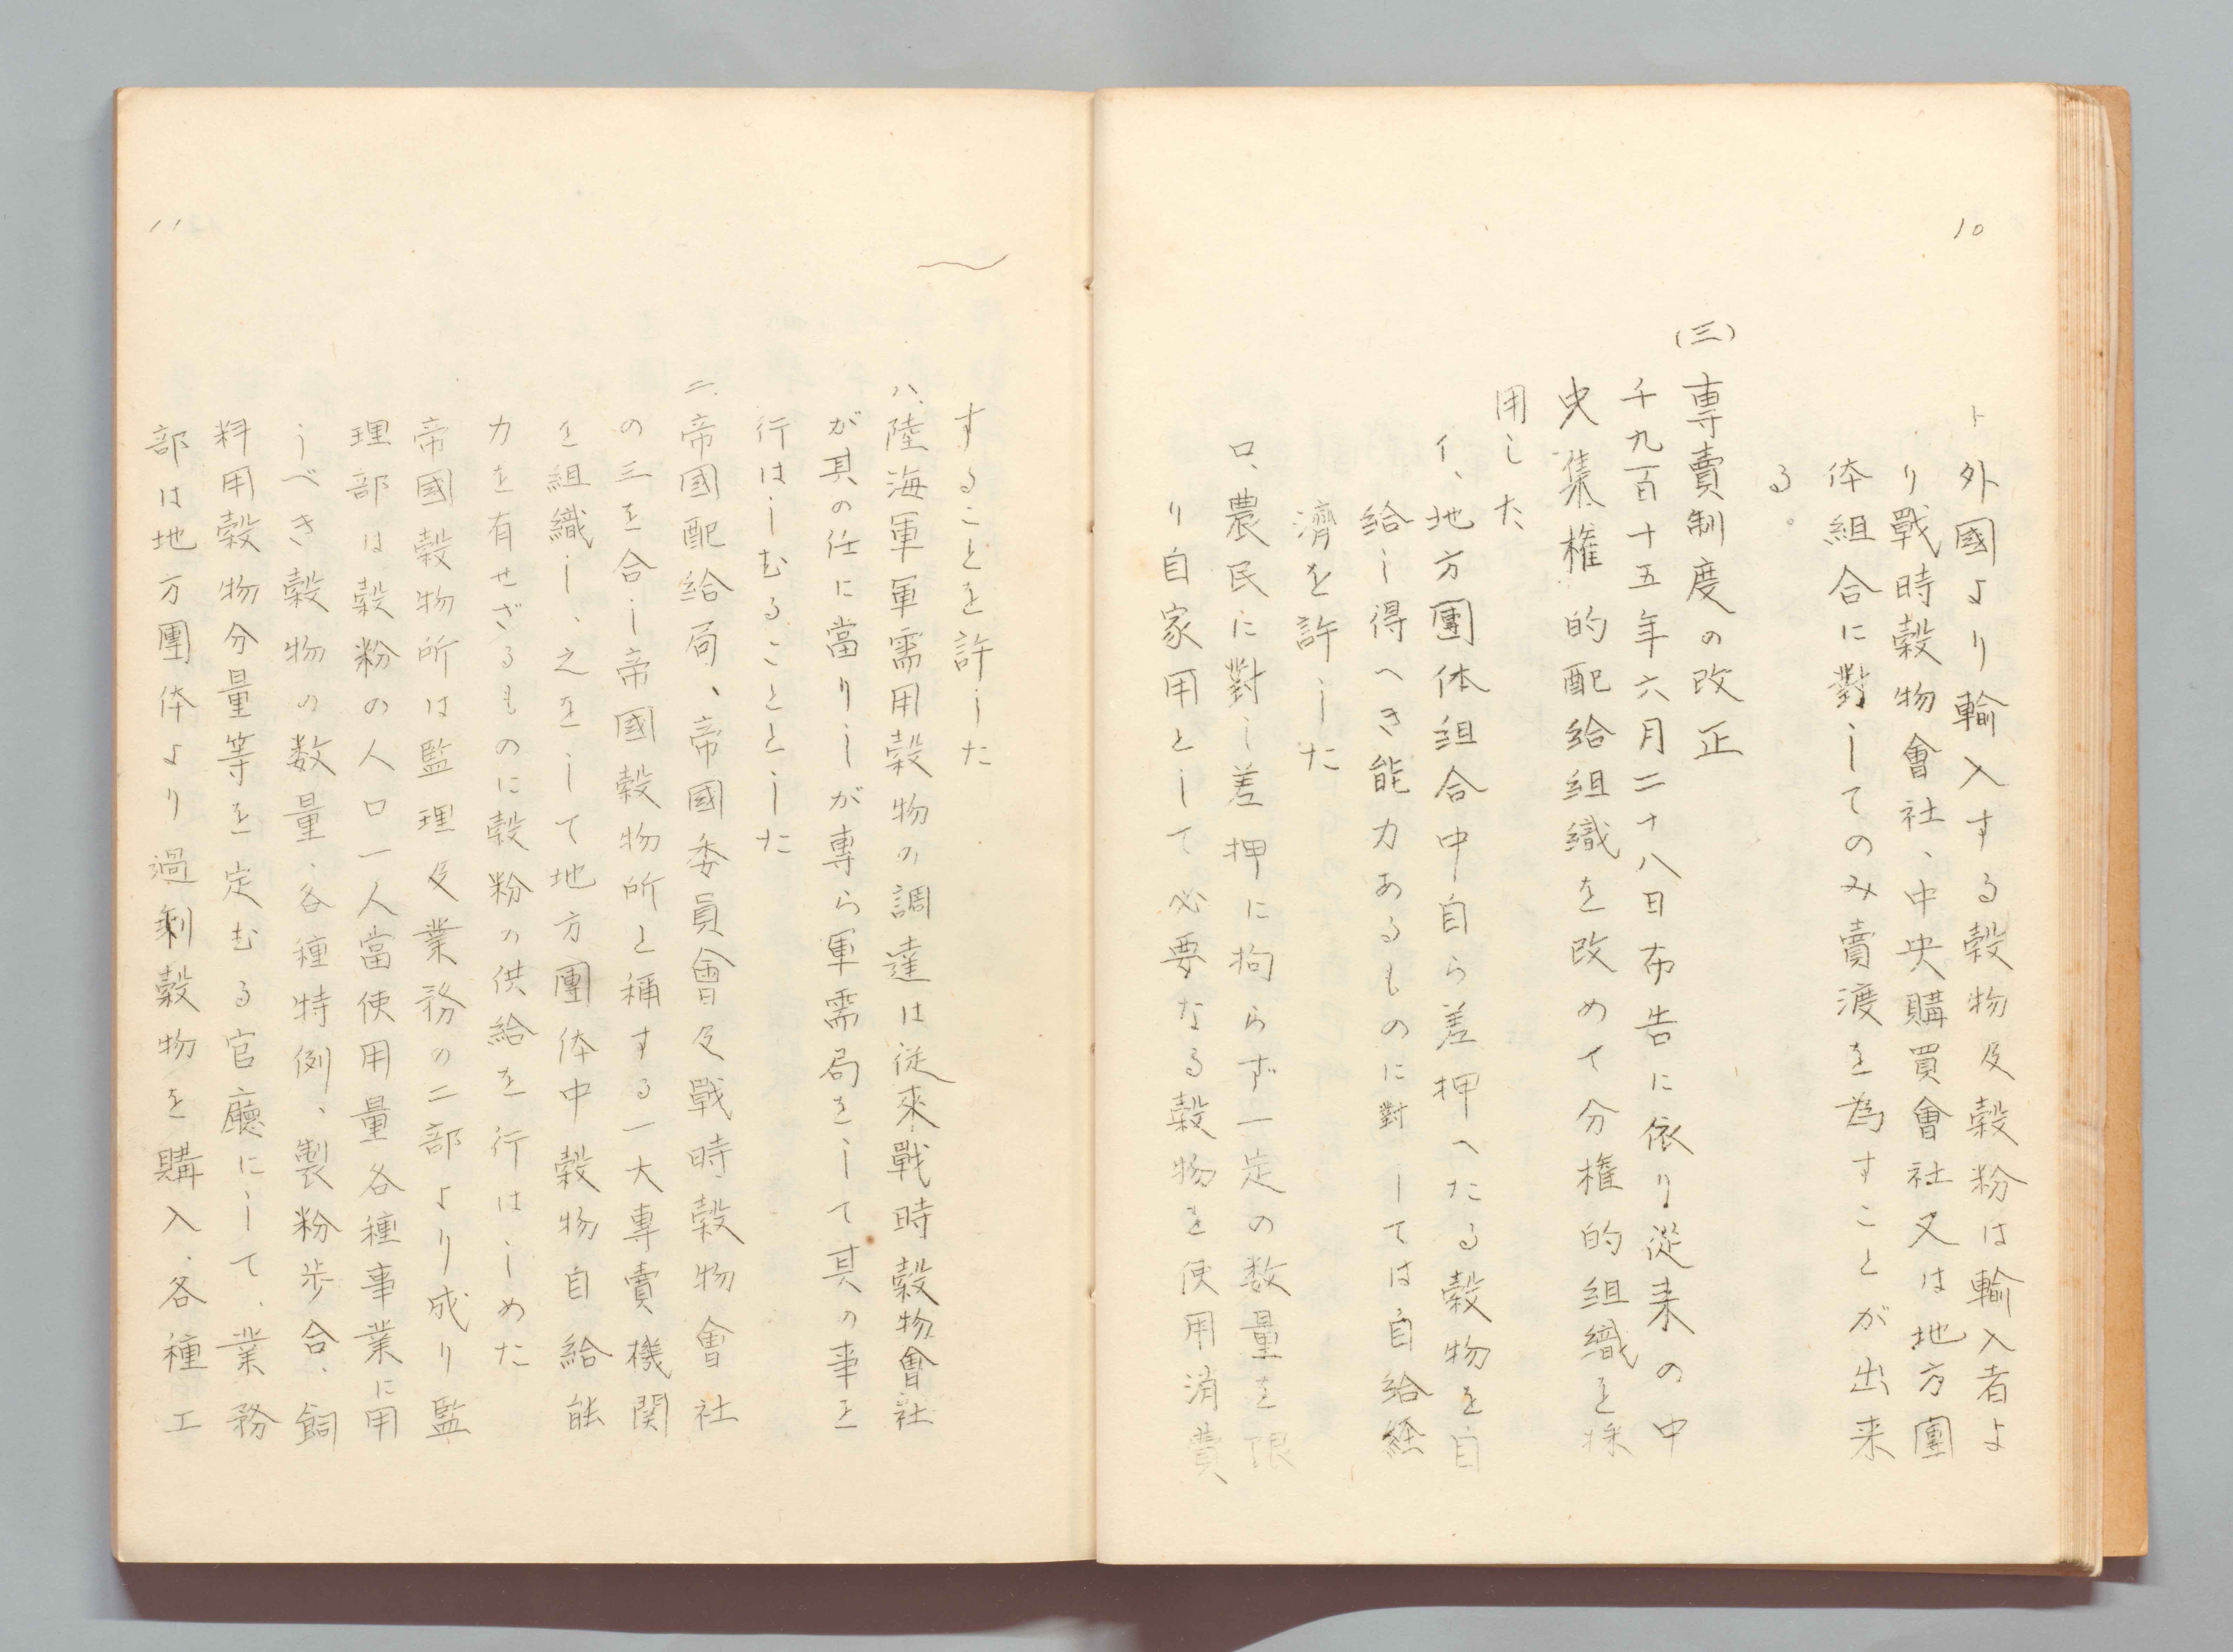 10
ト外國より輸入する穀物及穀粉は輸入者よ
り戰時穀物會社、中央購買會社又は地方團
体組合に對してのみ賣渡を為すことが出来
る。
(三)専賣制度の改正
千九百十五年六月二十八日布告に依り從来の中
央集権的配給組織を改めて分権的組織を採
用した
イ、地方團体組合中自ら差押へたる穀物を自
給し得へき能力あるものに對しては自給経
濟を許した
ロ、農民に對し差押に拘らず一定の数量を限
り自家用として必要なる穀物を使用消費
11
することを許した
ハ、陸海軍軍需用穀物の調達は従來戰時穀物會社
が其の任に當りしが專ら軍需局をして其の事を
行はしむることとした
ニ、帝國配給局、帝國委員會及戰時穀物會社
の三を合し帝國穀物所と稱する一大專賣機関
を組織し、之をして地方團体中穀物自給能
力を有せざるものに穀粉の供給を行はしめた
帝國穀物所は監理及業務の二部より成り監
理部は穀粉の人口一人當使用量各種事業に用
しべき穀物の数量、各種特例、製粉歩合、飼
料用穀物分量等を定むる官廳にして、業務
部は地方團体より過剰穀物を購入、各種工